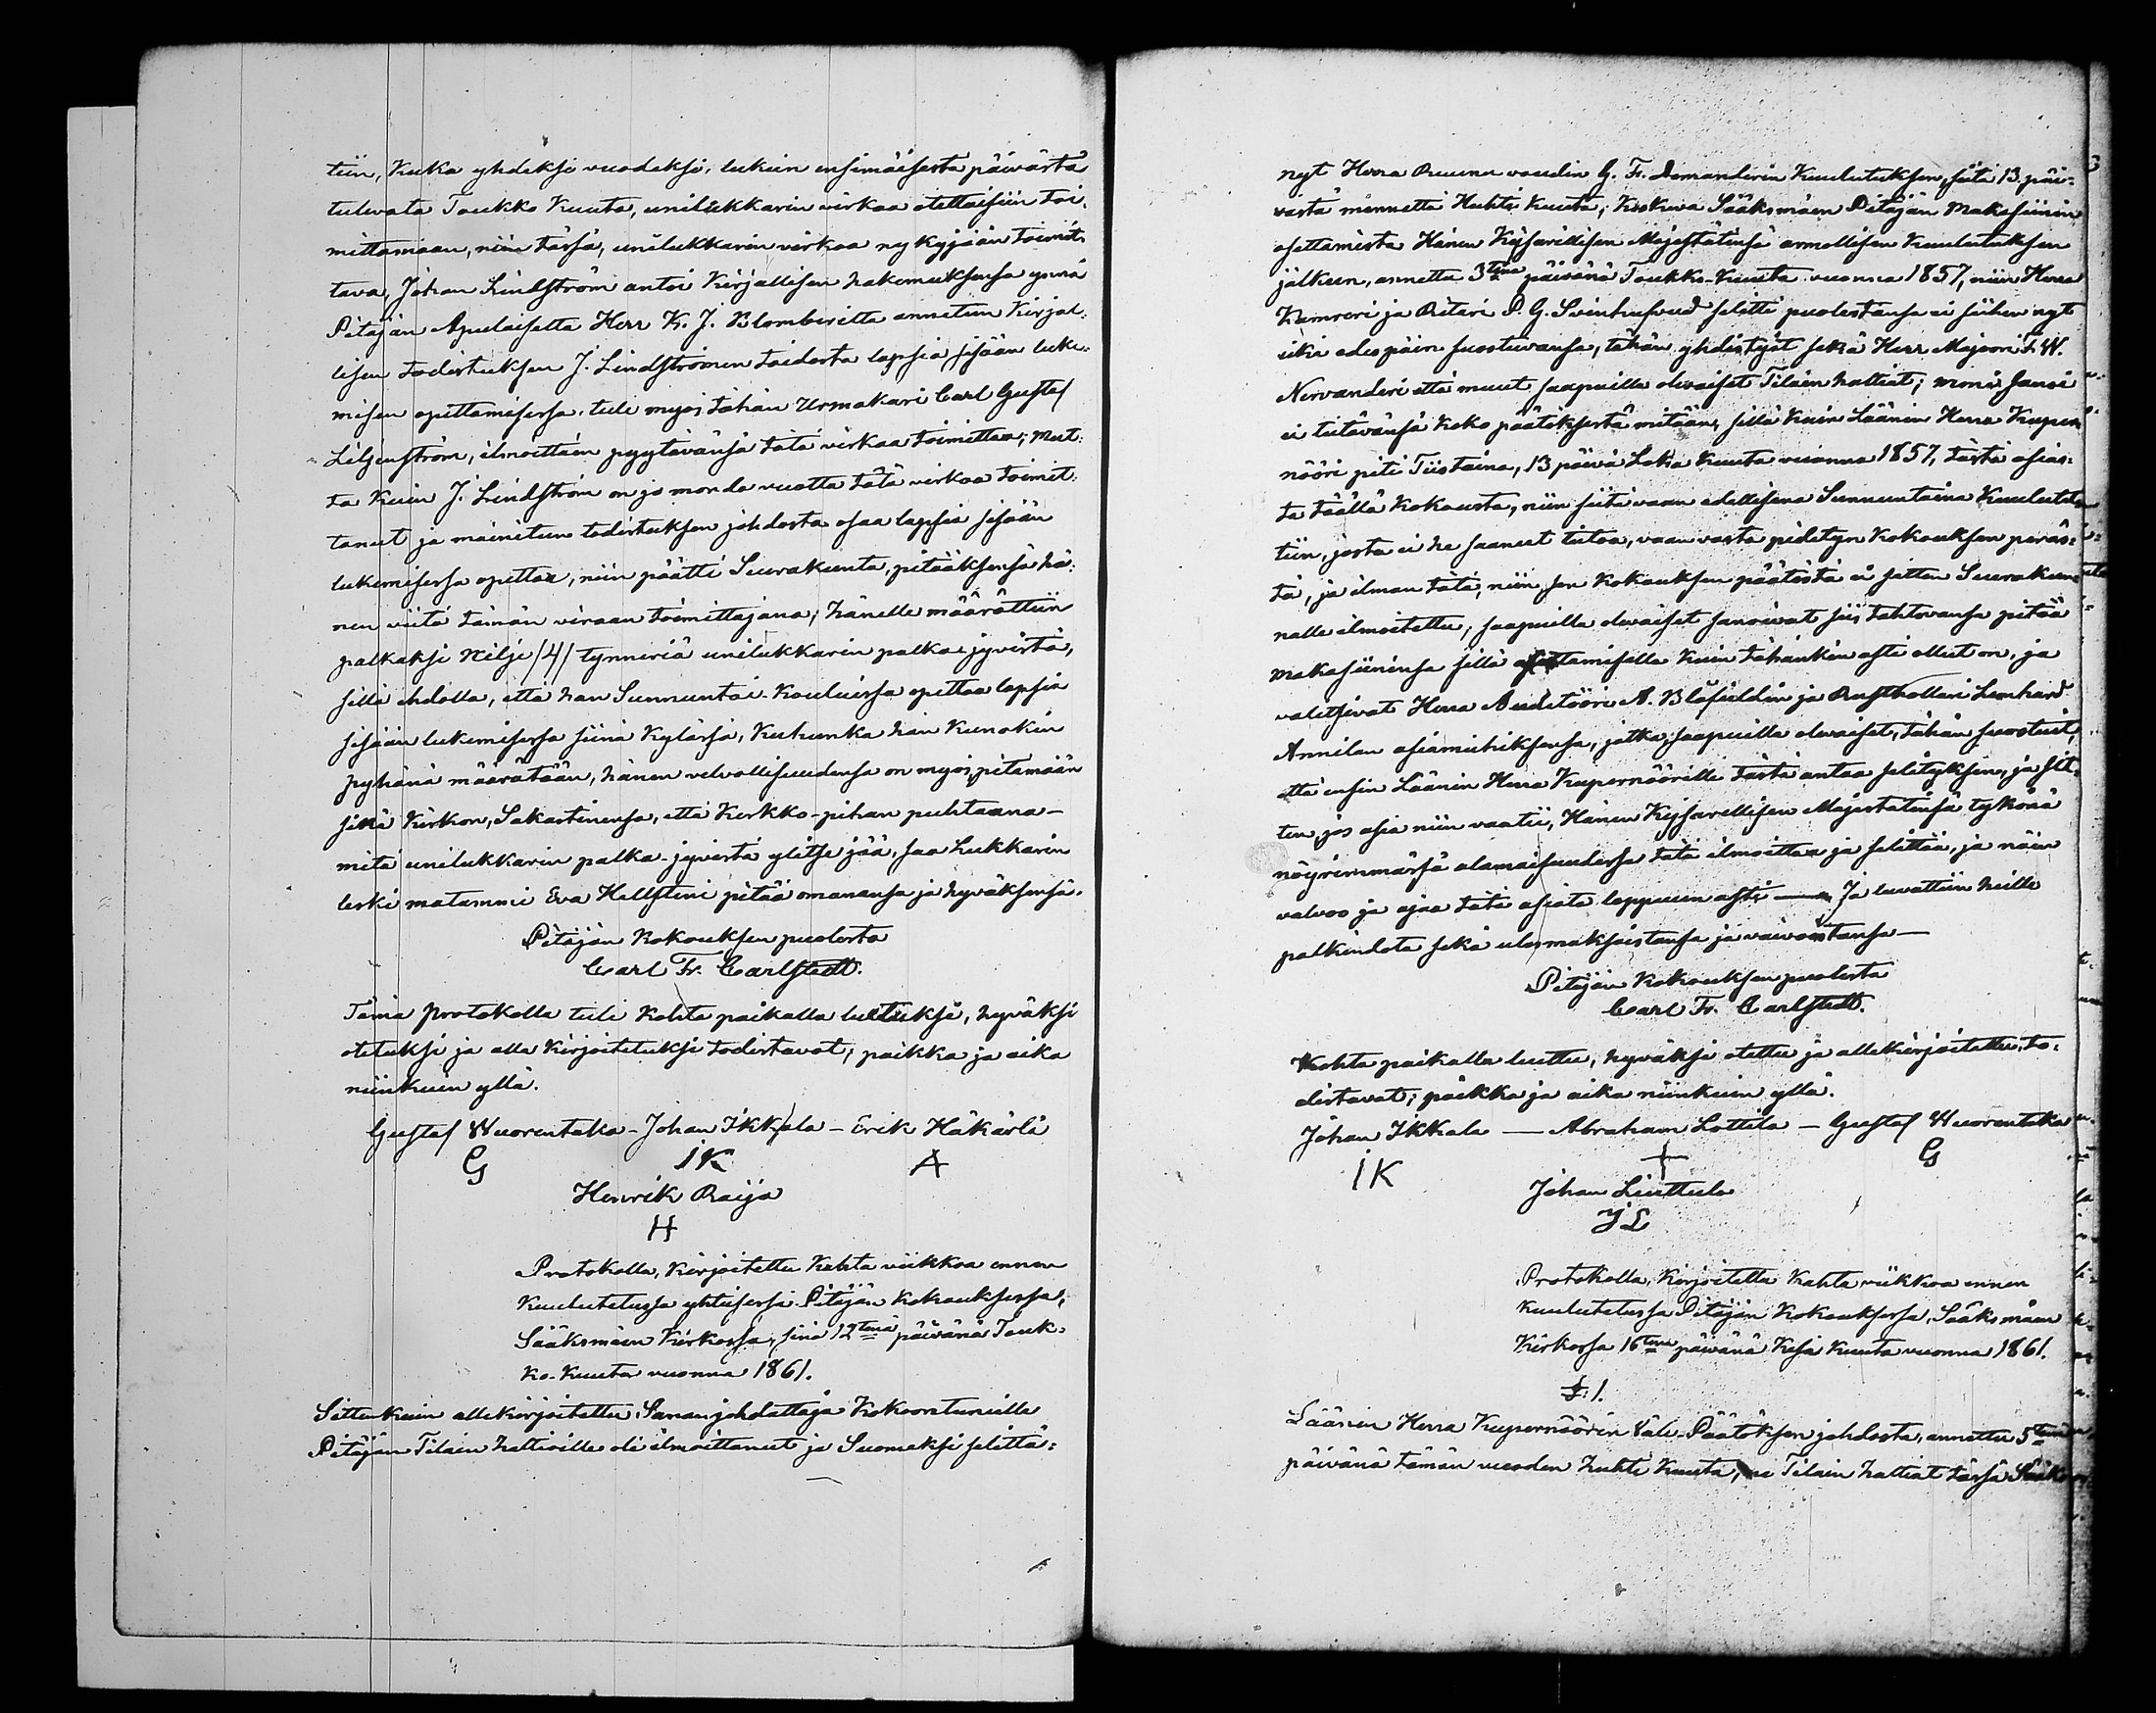 tiin, Kuka yhdeksi vuodeksi, lukein ensimäisestä päivästä
tulevata Toukko Kuuta, unilukkarin virkaa otettaisiin toi-
mittamaan, niin tässä, unilukkarin virkaa nykyjään toimit-
tava, Johan Lindström antoi Kirjallisen hakemuksensa ynnä
Pitäjän Apulaiselta Herr K. J. Blomberilta annetun Kirjal-
lisen todistuksen J. Lindströmin taidosta lapsia sisään luke-
misen opettamisessa. tuli myös tähän Urmakari Carl Gustaf
Liljenström, ilmoittain pyytävänsä tätä virkaa toimittaa; mut-
ta Kuin J. Lindström on jo monda vuotta tätä virkaa toimit-
tanut ja mainitun todistuksen johdosta osaa lapsia sisään
lukemisessa opettaa, niin päätti Seurakunta, pitääksensä hä-
nen viitä tämän viraan toimittajana; hänelle määrättiin
palkaksi Nelje /4/ tynneriä unilukkarin palka-jyvistä,
sillä ehdolla, että hän Sunnuntai-Kouluissa opettaa lapsia
sisään lukemisessa siinä Kylässä, Kuhunka hän Kunakin
pyhänä määrätään, hänen velvollisuudensa on myös pitämään
sekä Kirkon, Sakastinensa, että Kirkko-pihan puhtaana –
mitä unilukkarin palka-jyvistä ylitse jää, saa Lukkarin
leski matammi Eva Hellsteni pitää omanansa ja hyväksensä.
Pitäjän Kokouksen puolesta
Carl Fr. Carlstedt.
Tämä Protokolla tuli Kohta paikalla luetuksi, hyväksi
otetuksi ja alle Kirjoitetuksi todistavat; paikka ja aika
niinkuin yllä.
Gustaf Wuorentaka – Johan Ikkala – Erik Häkärlä
G IK A
Henrik Raija
H
Protokolla, Kirjoitettu Kahta viikkoa ennen
Kuulutetussa yhteisessä Pitäjän Kokouksessa,
Sääksmäen Kirkossa, sinä 12tenä päivänä Touk-
ko-Kuuta vuonna 1861.
Sittenkuin allekirjoitettu Sananjohdattaja Kokoontuneille
Pitäjän Tilain haltioille oli ilmoittanut ja Suomeksi selittä-
nyt Herra Ruunu voudin G. Fr. Demanderin Kuulutuksen, siitä 13 päi-
västä mennettä Huhti Kuuta; Koskeva Sääksmäen Pitäjän Makasiinin
asettamista Hänen Keisarillisen Majestätinsä armollisen Kuulutuksen
jälkeen, annettu 3tena päivänä Toukko-Kuuta vuonna 1857, niin Herra
Kamreri ja Ritari P. G. Svinhufvud selitti puolestansa ei siihen nyt
eikä edespäin suostuvansa, tähän yhdistyit sekä Herr Majoori F. W.
Nervanderi että muut saapuilla olevaiset Tilain haltiat; moni sanoi
ei tietävänsä koko päätöksestä mitään, sillä Kuin Läänin Herra Kuper-
nööri piti Tiistaina, 13 päivä Loka Kuuta vuonna 1857, tästä asias-
ta täällä Kokousta, niin siitä vaan edellisenä Sunnuntaina Kuulutet-
tiin, josta ei he saaneet tietoa, vaan vasta pidetyn Kokouksen peräs-
tä, ja ilman tätä, niin sen Kokouksen päätöstä ei sitten Seurakun-
nalle ilmoitettu; saapuilla olevaiset sanoivat siis tahtovansa pitää
makasiininsa sillä asettamisella Kuin tähänkin asti ollut on, ja
valitsivat Herra Auditööri A. Blåfieldin ja Rusthollari Leonhard
Annilan asiamiehiksensä, jotka, saapuilla olevaiset, tähän suostuit,
että ensin Läänin Herra Kupernöörille tästä antaa selityksen, ja sit-
ten, jos asia niin vaatii, Hänen Keisarillisen Majestätinsä tykönä
nöyrimmässä alamaisuudessa tätä ilmoittaa ja selittää, ja näin
valvoo ja ajaa tätä asiata loppuun asti — Ja luvattiin heille
palkindota sekä ulosmaksoistansa ja vaivoistansa –
Pitäjän Kokouksen puolesta
Carl Fr. Carlstedt.
Kohta paikalla luettu, hyväksi otettu ja allekirjoitettu, to-
distavat; paikka ja aika niinkuin yllä.
Johan Ikkala — Abraham Lottila – Gustaf Wuorentaka
IK + G
Johan Liuttula
JL
Protokolla, Kirjoitettu Kahta viikkoa ennen
kuulutetussa Pitäjän Kokouksessa, Sääksmäen
Kirkossa 16tena päivänä Kesä Kuuta vuonna 1861.
§ 1.
Läänin Herra Kupernöörin Väli-Päätöksen johdosta, annettu 5tenä
päivänä tämän vuoden huhti Kuuta, ne Tilain haltiat tässä Sääks-